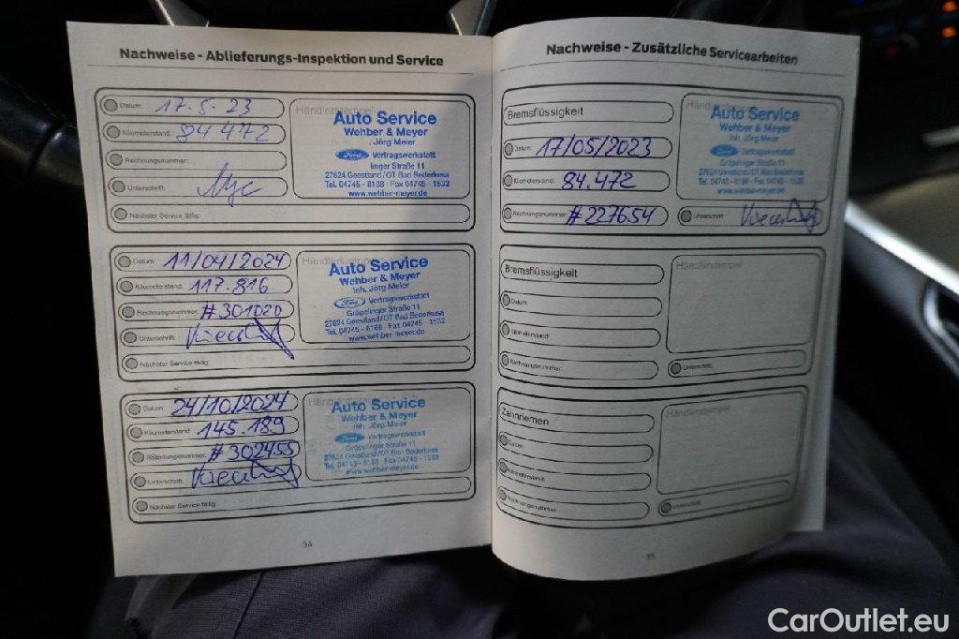 Nachweise - Ablieferungs-Inspektion und Service
Datum: 17.5.23
Kilometerstand: 84 472
Rechnungsnummer:
Unterschrift:
Nächster Service fällig:
Händlerstempel
Auto Service
Wehber & Meyer
Jörg Meier
Ford Vertragswerkstatt
linger Straße 11
27624 Geestland/OT Bad Bederkesa
Tel. 04745 - 6188 · Fax 04745 - 1532
www.wehber-meyer.de
Datum: 11/04/2024
Kilometerstand: 117.816
Rechnungsnummer: #301020
Unterschrift:
Nächster Service fällig:
Händlerstempel
Auto Service
Wehber & Meyer
Inh. Jörg Meier
Ford Vertragswerkstatt
Gröpelinger Straße 11
27624 Geestland/OT Bad Bederkesa
Tel. 04745 - 6188 · Fax 04745 - 1532
www.wehber-meyer.de
Datum: 24/10/2024
Kilometerstand: 145.189
Rechnungsnummer: #302455
Unterschrift:
Nächster Service fällig:
Auto Service
Wehber & Meyer
Inh. Jörg Meier
Ford Vertragswerkstatt
Gröpelinger Straße 11
27624 Geestland/OT Bad Bederkesa
Tel. 04745 - 6188 · Fax 04745 - 1532
www.wehber-meyer.de
34
Nachweise - Zusätzliche Servicearbeiten
Bremsflüssigkeit
Datum: 17/05/2023
Kilometerstand: 84.472
Rechnungsnummer: #227654
Auto Service
Wehber & Meyer
Inh. Jörg Meier
Ford Vertragswerkstatt
Gröpelinger Straße 11
27624 Geestland/OT Bad Bederkesa
Tel. 04745 - 6188 · Fax 04745 - 1532
www.wehber-meyer.de
Unterschrift:
Bremsflüssigkeit
Datum:
Kilometerstand:
Rechnungsnummer:
Händlerstempel
Unterschrift:
Zahnriemen
Datum:
Kilometerstand:
Rechnungsnummer:
Händlerstempel
Unterschrift:
35
CarOutlet.eu